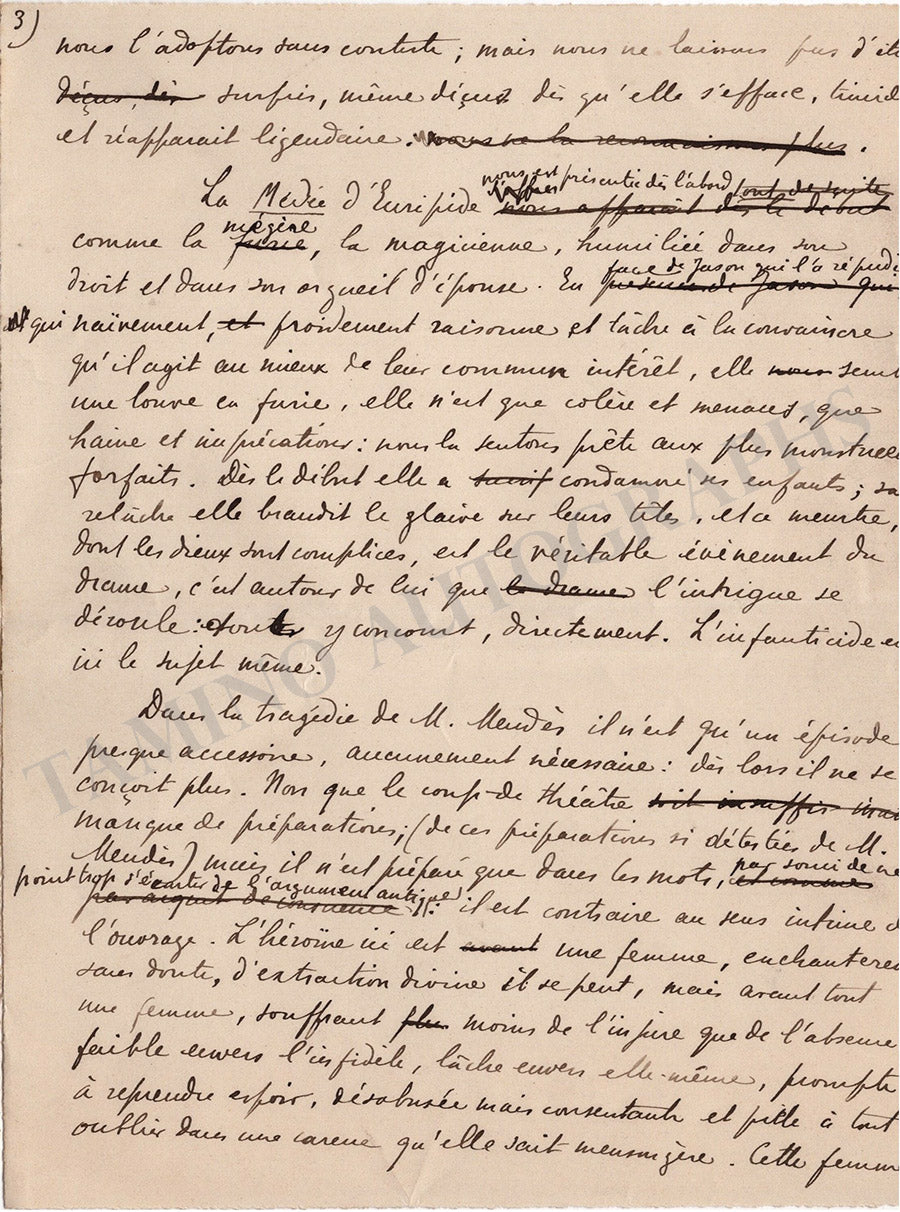 3)
nous l'adoptons sans conteste ; mais nous ne laissons pas d'êt
déçus, dès surpris, même déçus dès qu'elle s'efface, timid
et réapparait légendaire. nous ne la reconnaissons plus.
nous est présentée dès l'abord tout de suite
La Médée d'Euripide nous apparait dès le début
mégère
comme la furie, la magicienne, humiliée dans son
droit et dans son orgueil d'épouse. En
face de Jason qui l'a répudi
présence de Jason qui
et qui naïvement, et froidement raisonne et tâche à la convaincre
qu'il agit au mieux de leur commun intérêt, elle nous sem
une louve en furie, elle n'est que colère et menaces, que
haine et imprécations : nous la sentons prête aux plus monstrue
forfaits. Dès le début elle a condamné ses enfants ; sa
relâche elle brandit le glaive sur leurs têtes, et ce meurtre,
dont les dieux sont complices, est le véritable évènement du
drame, c'est autour de lui que le drame l'intrigue se
déroule : tout y concourt, directement. L'infanticide e
ici le sujet même.
Dans la tragédie de M. Mendès il n'est qu'un épisode
presque accessoire, aucunement nécessaire : dès lors il ne se
conçoit plus. Non que le coup de théâtre soit insuffis
manque de préparations ; (de ces préparations si détestées de M.
Mendès) mais il n'est préparé que dans les mots, et comme
par souci de ne
point trop s'écarter de l'argument antique)
par acquit de conscience : il est contraire au sens intime d
l'ouvrage. L'héroïne ici est avant une femme, enchantere
sans doute, d'extraction divine il se peut, mais avant tout
une femme, souffrant plus moins de l'injure que de l'absence
faible envers l'infidèle, lâche envers elle-même, prompte
à reprendre espoir, désabusée mais consentante et prête à tout
oublier dans une caresse qu'elle sait mensongère. Cette femm
TAMINO AUTOGRAPHS